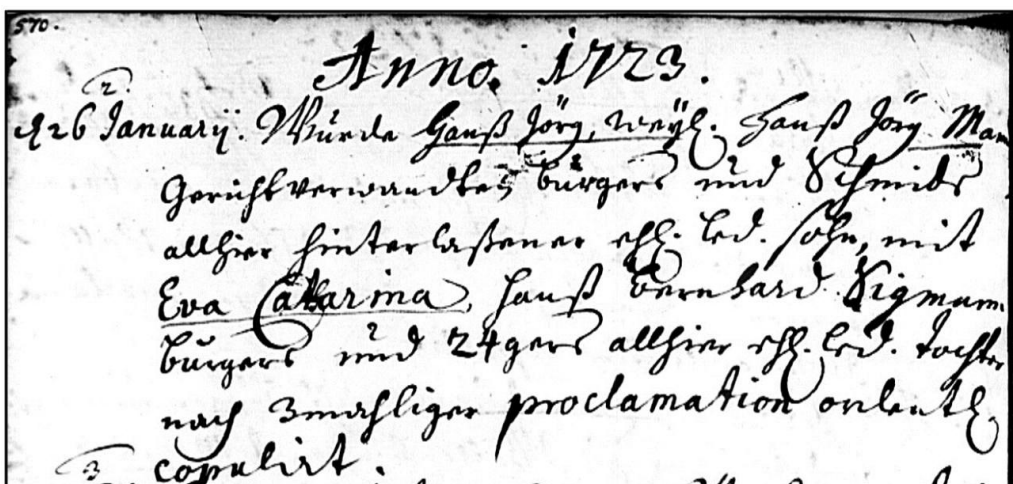 570.
Anno. 1723.
2.
d 26 January. Wurde Hanß Jörg, weyl. Hanß Jörg Man
Gerichtverwandten burgers und Schmids
allhier hinterlaßener ehl. led. sohn, mit
Eva Catarina, Hanß Bernhard Sigman
burgers und 24gers allhier ehl. led. tochter
nach 3mahliger proclamation ordentl.
3 copulirt.